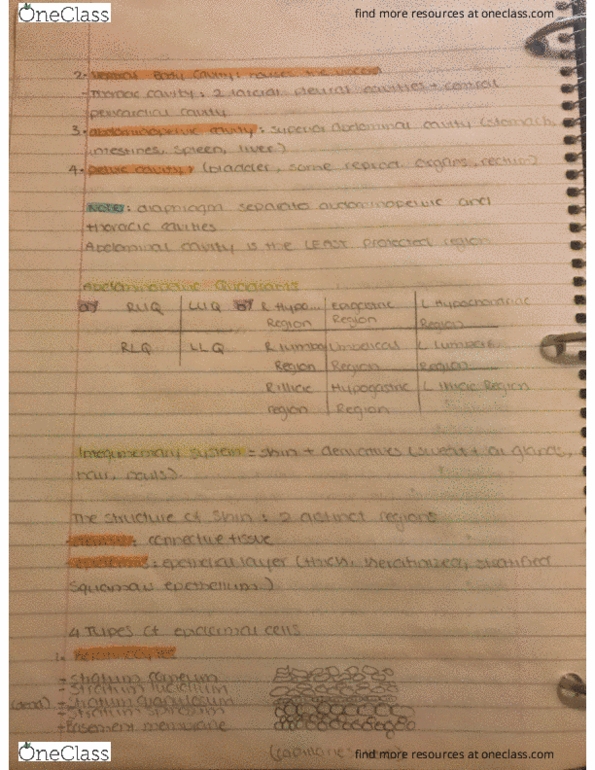 OneClass find more resources at oneclass.com
2. Ventral Body Cavity: houses the viscera
- Thoracic cavity: 2 lateral pleural cavities + central
pericardial cavity
3. abdominopelvic cavity: superior abdominal cavity (stomach,
intestines, spleen, liver)
4. Pelvic cavity: (bladder, some reprod. organs, rectum)
Note: diaphragm separate abdominopelvic and
thoracic cavities
Abdominal cavity is the LEAST protected region
Abdominopelvic Quadrants
a) RUQ LUQ b) R Hypo... Epigastric L Hypochondriac
Region Region Region
RLQ LLQ R lumbar Umbilical L Lumbar
Region Region Region
R Iliac Hypogastric L Iliac Region
region Region
Integumentary System = skin + derivatives (sweat + oil glands,
hair, nails).
The structure of skin: 2 distinct regions
: connective tissue
: epithelial layer (thick, keratinized, stratified
squamous epithelium.)
4 Types of epidermal cells
1. Keratinocytes
- Stratum
- Stratum
- Stratum
- Stratum
- Basement membrane
OneClass find more resources at oneclass.com